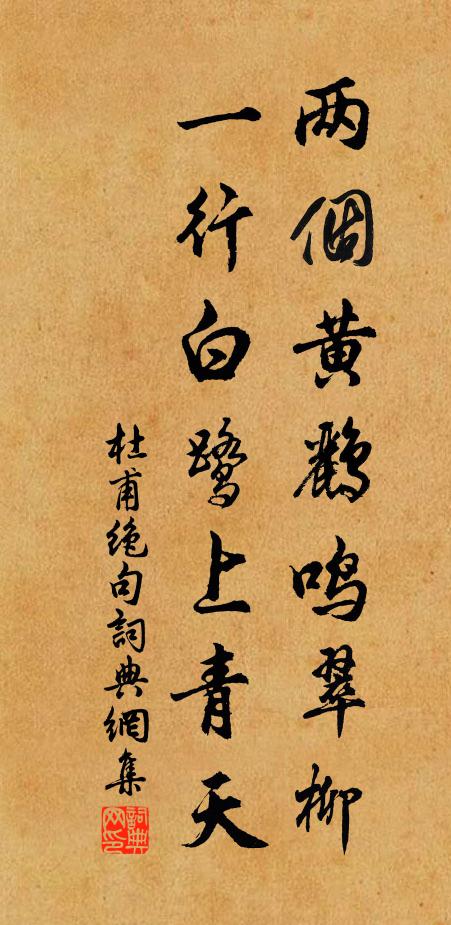 两個黄鸝鳴翠柳
一行白鷺上青天
杜甫绝句詞典網集
詞典网印